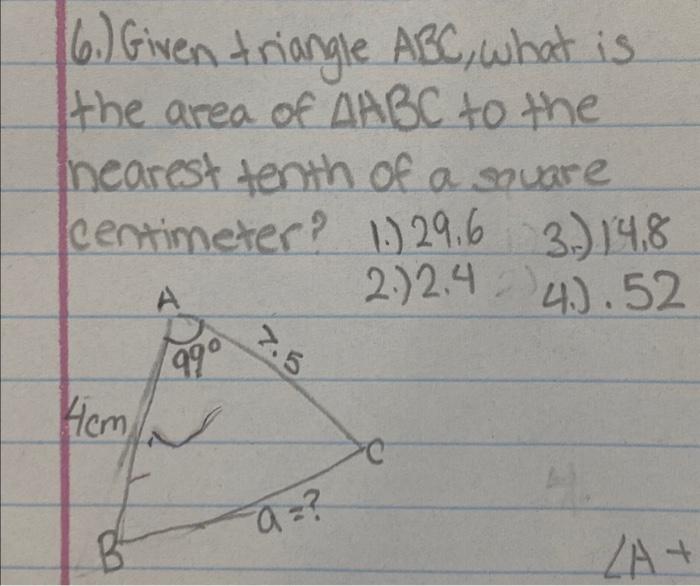 6.) Given triangle ABC, what is
the area of ΔABC to the
nearest tenth of a square
centimeter? 1.) 29.6 3.) 14.8
2.) 2.4 4.) .52
A
99°
7.5
4cm
C
a=?
B
∠A +